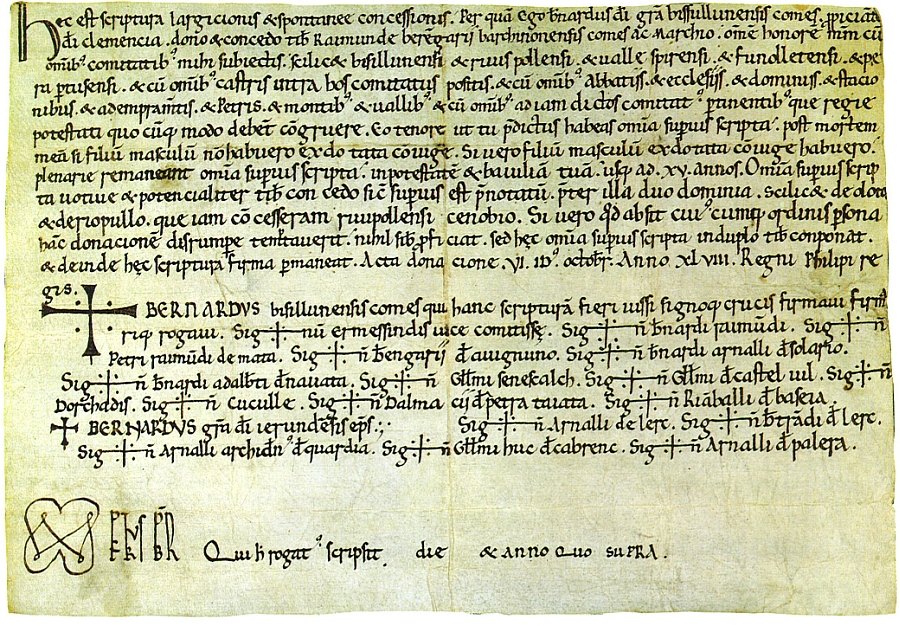 Hec est scriptura largicionis & spontaneę concessionis. Per quã ego b̃nardus dĩ gr̃a bissullunensis comes
dĩ clemencia. dono & concedo tib̃ Raimunde berẽgarii barchinonensis comes ac Marchio. om̃e honorẽ
om̃ib; comitatib; mihi subiectis. scilic& bisillunensi & rivis pollensi. & valle spirensi. & funolletensi. & pe
ra ptusensi. & cũ om̃ib; castris intra hos comitatus positis. & cũ om̃ib; abbatiis. & ecclesiis. & dominiis. & stacio
nibus. & & petris. & montib; & vallib; & cũ om̃ib; ad iam dictos comitat; p̱tinentib; que regie
potestati quo cũq̃ modo debet cõgruere. Eo tenore ut tu p̃dictus habeas om̃ia sup̱ius scripta. post mortem
meã si filiũ masculũ nõ habuero ex dotata cõiuge. Si vero filiũ masculũ ex dotata cõiuge habuero.
plenarie remaneant om̃ia sup̱ius scripta. in potestatẽ & bauilia tua. usq̃ ad. XV. annos. Om̃ia sup̱ius scrip
ta votive & potencialiter tib̃ concedo sic̃ sup̱ius est p̃notatũ. p̃ter illa duo dominia. scilic& de
& de riopullo. que iam cõcesseram rivipollensi cenobio. Si vero qd̃ absit cui; cumq̃ ordinis p̱sona
hãc donacionẽ disrumpe temptaverit. nihil sib̃ p̱ficiat. sed hęc om̃ia sup̱ius scripta in duplo tib̃ conponat.
& deinde hęc scriptura firma p̱maneat. Acta donacione. VI. ID; octobr̃. Anno XL VIII. Regni Philipi re
gis.
BERNARDVS bisillunensis comes qui hanc scripturã fieri iussi signoq̃ crucis firmavi
riq̃ rogavi. Sig nũ ermessindis comitissę. Sig ñ b̃nardi raimũdi. Sig ñ
Petri raimũdi de mata. Sig ñ b̃engarii đ avignuno. Sig ñ b̃nardi arnalli đ solario.
Sig ñ b̃nardi adalb̃ti đ navata. Sig ñ Gll̃mi senescalch. Sig ñ Gll̃mi đ castel vul. Sig ñ
Sig ñ cuculle. Sig ñ Dalmacii đ petra taiata. Sig ñ Riãballi đ baseia.
BERNARDVS gr̃a dĩ ierundẽsis ep̃s. Sig ñ Arnalli de lerc. Sig ñ b̃trãdi đ lerc.
Sig ñ Arnalli archidñ; đ guardia. Sig ñ Gll̃mi huc đ cabrenc. Sig ñ Arnalli đ palera.
Qui h̃ rogat; scripsit. die & anno quo supra.